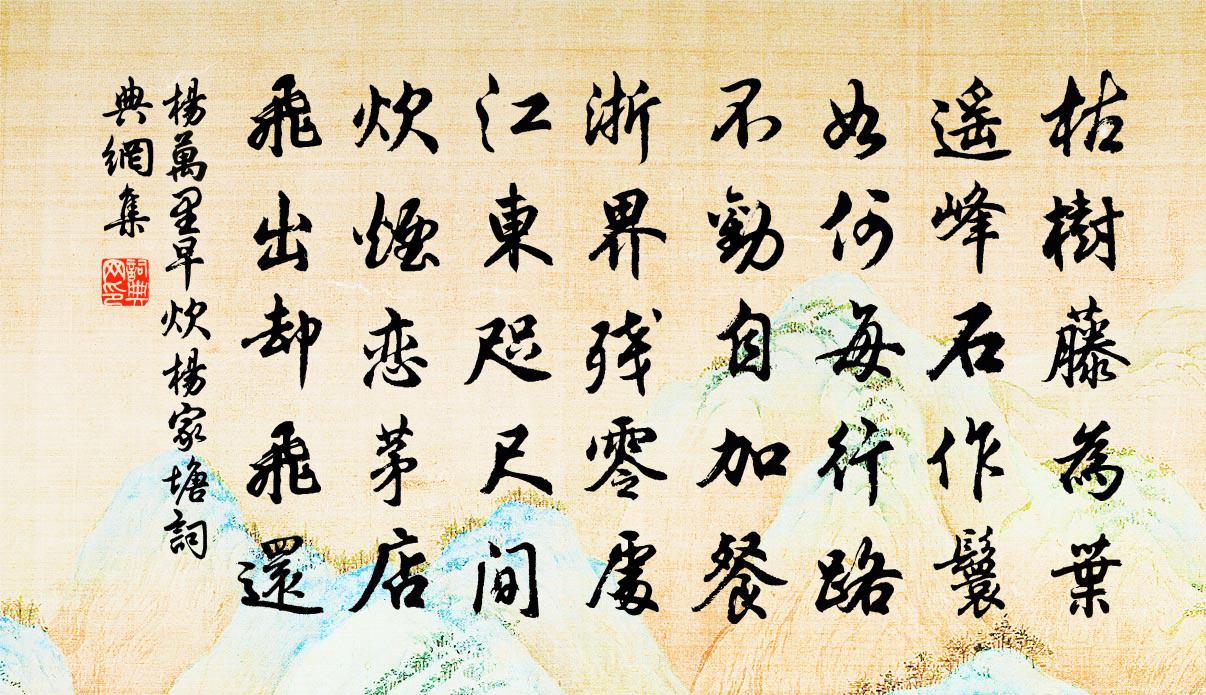 枯樹藤為葉
遥峰石作鬟
如何每行路
不勸自加餐
浙界残零處
江東咫尺間
炊煙恋茅店
飛出却飛還
楊萬里早炊楊家塘詞
典網集
詞典
网印